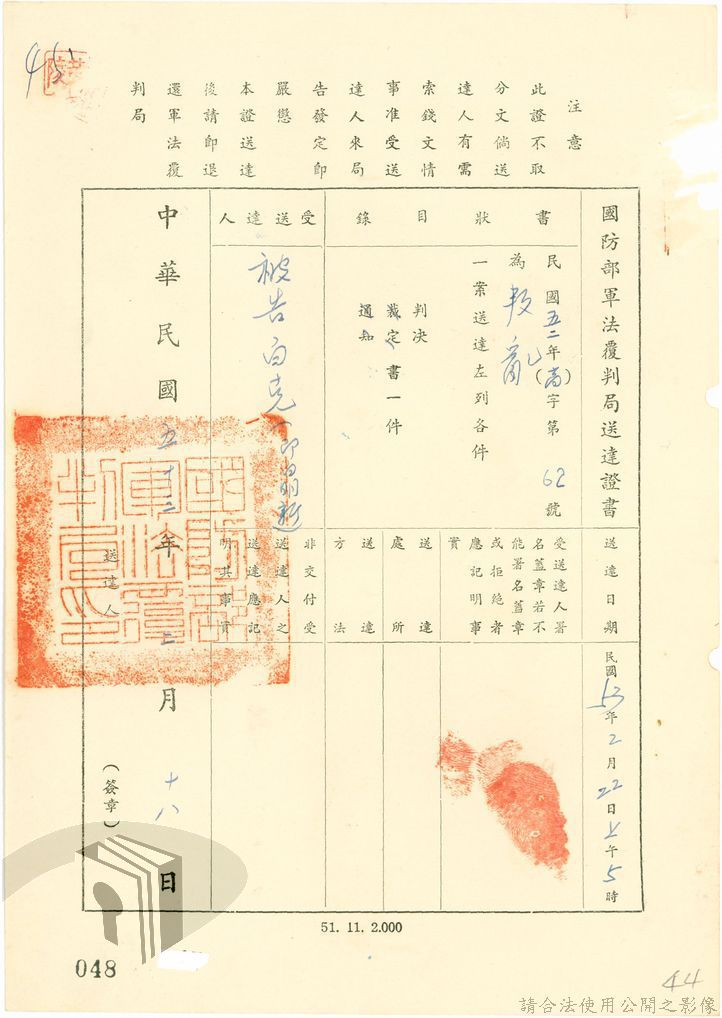 國防部軍法覆判局送達證書
送達日期
民國53年2月22日上午5時
書狀目錄
民國五二年(高)字第62號
為叛亂
一案送達左列各件
判決
裁定書一件
通知
受送達人署
名蓋章若不
能署名蓋章
或拒絕者
應記明事
實
送達
處所
送達
方法
受送達人
被告白克
非交付受
送達人之
送達應記
明其事實
中華民國五十三年二月十八日
送達人
(簽章)
注意
此證不取
分文倘送
達人有需
索錢文情
事准受送
達人來局
告發定即
嚴懲
本證送達
後請即退
還軍法覆
判局
51. 11. 2.000
048
44
45
請合法使用公開之影像